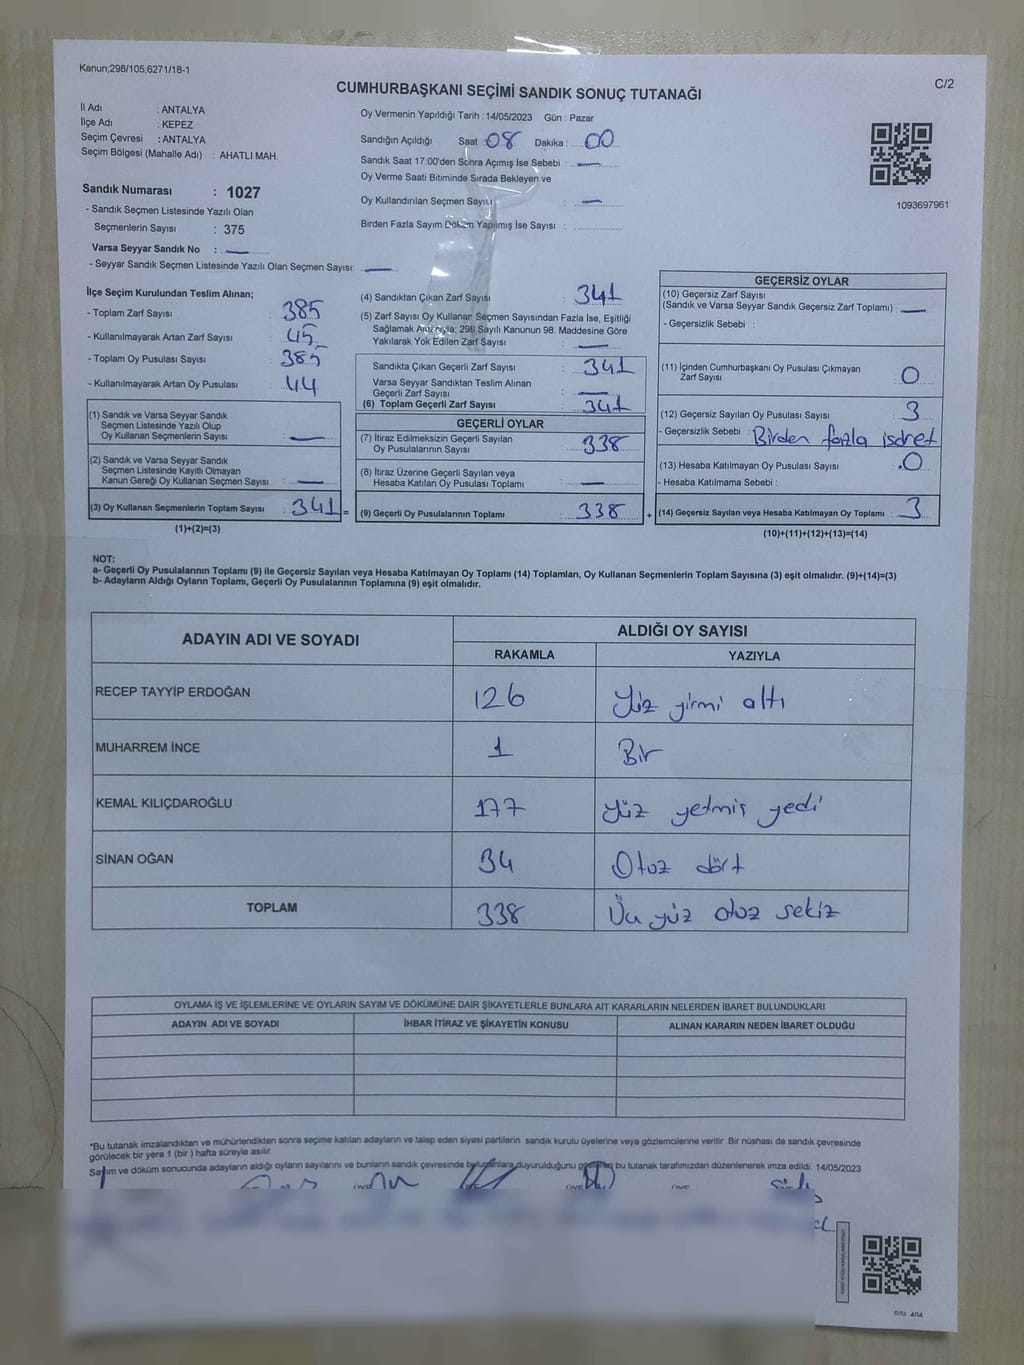 Kanun;298/105;6271/18-1
C/2
CUMHURBAŞKANI SEÇİMİ SANDIK SONUÇ TUTANAĞI
İl Adı : ANTALYA
İlçe Adı : KEPEZ
Seçim Çevresi : ANTALYA
Seçim Bölgesi (Mahalle Adı) : AHATLI MAH.
Sandık Numarası : 1027
- Sandık Seçmen Listesinde Yazılı Olan
Seçmenlerin Sayısı : 375
Varsa Seyyar Sandık No :
- Seyyar Sandık Seçmen Listesinde Yazılı Olan Seçmen Sayısı:
Oy Vermenin Yapıldığı Tarih : 14/05/2023 Gün : Pazar
Sandığın Açıldığı Saat : 08 Dakika : 00
Sandık Saat 17:00'den Sonra Açımış İse Sebebi :
Oy Verme Saati Bitiminde Sırada Bekleyen ve
Oy Kullandırılan Seçmen Sayısı :
Birden Fazla Sayım Döküm Yapılmış İse Sayısı :
1093697961
İlçe Seçim Kurulundan Teslim Alınan;
- Toplam Zarf Sayısı : 385
- Kullanılmayarak Artan Zarf Sayısı : 45
- Toplam Oy Pusulası Sayısı : 385
- Kullanılmayarak Artan Oy Pusulası : 44
(1) Sandık ve Varsa Seyyar Sandık
Seçmen Listesinde Yazılı Olup
Oy Kullanan Seçmenlerin Sayısı :
(2) Sandık ve Varsa Seyyar Sandık
Seçmen Listesinde Kayıtlı Olmayan
Kanun Gereği Oy Kullanan Seçmen Sayısı :
(3) Oy Kullanan Seçmenlerin Toplam Sayısı : 341 =
(1)+(2)=(3)
(4) Sandıktan Çıkan Zarf Sayısı : 341
(5) Zarf Sayısı Oy Kullanan Seçmen Sayısından Fazla İse, Eşitliği
Sağlamak Amacıyla; 298 Sayılı Kanunun 98. Maddesine Göre
Yakılarak Yok Edilen Zarf Sayısı :
Sandıkta Çıkan Geçerli Zarf Sayısı : 341
Varsa Seyyar Sandıktan Teslim Alınan
Geçerli Zarf Sayısı :
(6) Toplam Geçerli Zarf Sayısı : 341
GEÇERLİ OYLAR
(7) İtiraz Edilmeksizin Geçerli Sayılan
Oy Pusulalarının Sayısı : 338
(8) İtiraz Üzerine Geçerli Sayılan veya
Hesaba Katılan Oy Pusulası Toplamı :
(9) Geçerli Oy Pusulalarının Toplamı : 338 +
GEÇERSİZ OYLAR
(10) Geçersiz Zarf Sayısı
(Sandık ve Varsa Seyyar Sandık Geçersiz Zarf Toplamı) :
- Geçersizlik Sebebi :
(11) İçinden Cumhurbaşkanı Oy Pusulası Çıkmayan
Zarf Sayısı : 0
(12) Geçersiz Sayılan Oy Pusulası Sayısı : 3
- Geçersizlik Sebebi : Birden fazla işaret
(13) Hesaba Katılmayan Oy Pusulası Sayısı : 0
- Hesaba Katılmama Sebebi :
(14) Geçersiz Sayılan veya Hesaba Katılmayan Oy Toplamı : 3
(10)+(11)+(12)+(13)=(14)
NOT:
a- Geçerli Oy Pusulalarının Toplamı (9) ile Geçersiz Sayılan veya Hesaba Katılmayan Oy Toplamı (14) Toplamları, Oy Kullanan Seçmenlerin Toplam Sayısına (3) eşit olmalıdır. (9)+(14)=(3)
b- Adayların Aldığı Oyların Toplamı, Geçerli Oy Pusulalarının Toplamına (9) eşit olmalıdır.
ADAYIN ADI VE SOYADI ALDIĞI OY SAYISI
RAKAMLA YAZIYLA
RECEP TAYYİP ERDOĞAN 126 Yüz yirmi altı
MUHARREM İNCE 1 Bir
KEMAL KILIÇDAROĞLU 177 Yüz yetmiş yedi
SİNAN OĞAN 34 Otuz dört
TOPLAM 338 Üç yüz otuz sekiz
OYLAMA İŞ VE İŞLEMLERİNE VE OYLARIN SAYIM VE DÖKÜMÜNE DAİR ŞİKAYETLERLE BUNLARA AİT KARARLARIN NELERDEN İBARET BULUNDUKLARI
ADAYIN ADI VE SOYADI İHBAR İTİRAZ VE ŞİKAYETİN KONUSU ALINAN KARARIN NEDEN İBARET OLDUĞU
*Bu tutanak imzalandıktan ve mühürlendikten sonra seçime katılan adayların ve talep eden siyasi partilerin sandık kurulu üyelerine veya gözlemcilerine verilir. Bir nüshası da sandık çevresinde
görülecek bir yere 1 (bir ) hafta süreyle asılır.
Sayım ve döküm sonucunda adayların aldığı oyların sayılarını ve bunların sandık çevresinde bulunanlara duyurulduğunu gösteren bu tutanak tarafımızdan düzenlenerek imza edildi. 14/05/2023